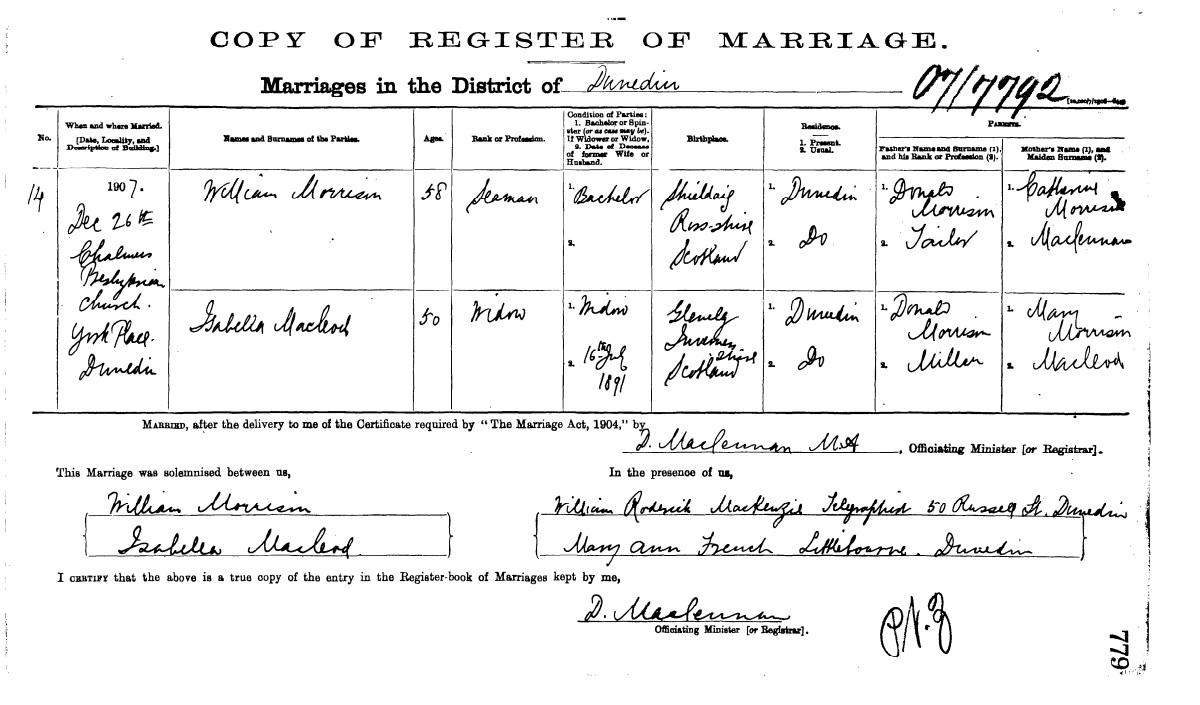 COPY OF REGISTER OF MARRIAGE.
Marriages in the District of Dunedin
07/7792
No.
When and where Married.
[Date, Locality, and
Description of Building.]
Names and Surnames of the Parties.
Ages.
Rank or Profession.
Condition of Parties:
1. Bachelor or Spin-
ster (or as case may be).
If Widower or Widow,
2. Date of Decease
of former Wife or
Husband.
Birthplace.
Residence.
1. Present.
2. Usual.
PARENTS.
Father's Name and Surname (1),
and his Rank or Profession (2).
Mother's Name (1), and
Maiden Surname (2).
14
1907.
Dec 26th
Chalmers
Presbyterian
Church.
York Place.
Dunedin
William Morrison
58
Seaman
1. Bachelor
2.
Shieldaig
Ross-shire
Scotland
1. Dunedin
2. Do
1. Donald
Morrison
2. Tailor
1. Catharine
Morrison
2. Maclennan
Isabella Macleod
50
Widow
1. Widow
2. 16th July
1891
Glenelg
Inverness
shire
Scotland
1. Dunedin
2. Do
1. Donald
Morrison
2. Miller
1. Mary
Morrison
2. Macleod
MARRIED, after the delivery to me of the Certificate required by "The Marriage Act, 1904," by
D. Maclennan M.A, Officiating Minister [or Registrar].
This Marriage was solemnised between us,
William Morrison
Isabella Macleod
In the presence of us,
William Roderick MacKenzie Telegraphist 50 Russell St. Dunedin
Mary Ann French Littlebourne. Dunedin
I CERTIFY that the above is a true copy of the entry in the Register-book of Marriages kept by me,
D. Maclennan
Officiating Minister [or Registrar].
779